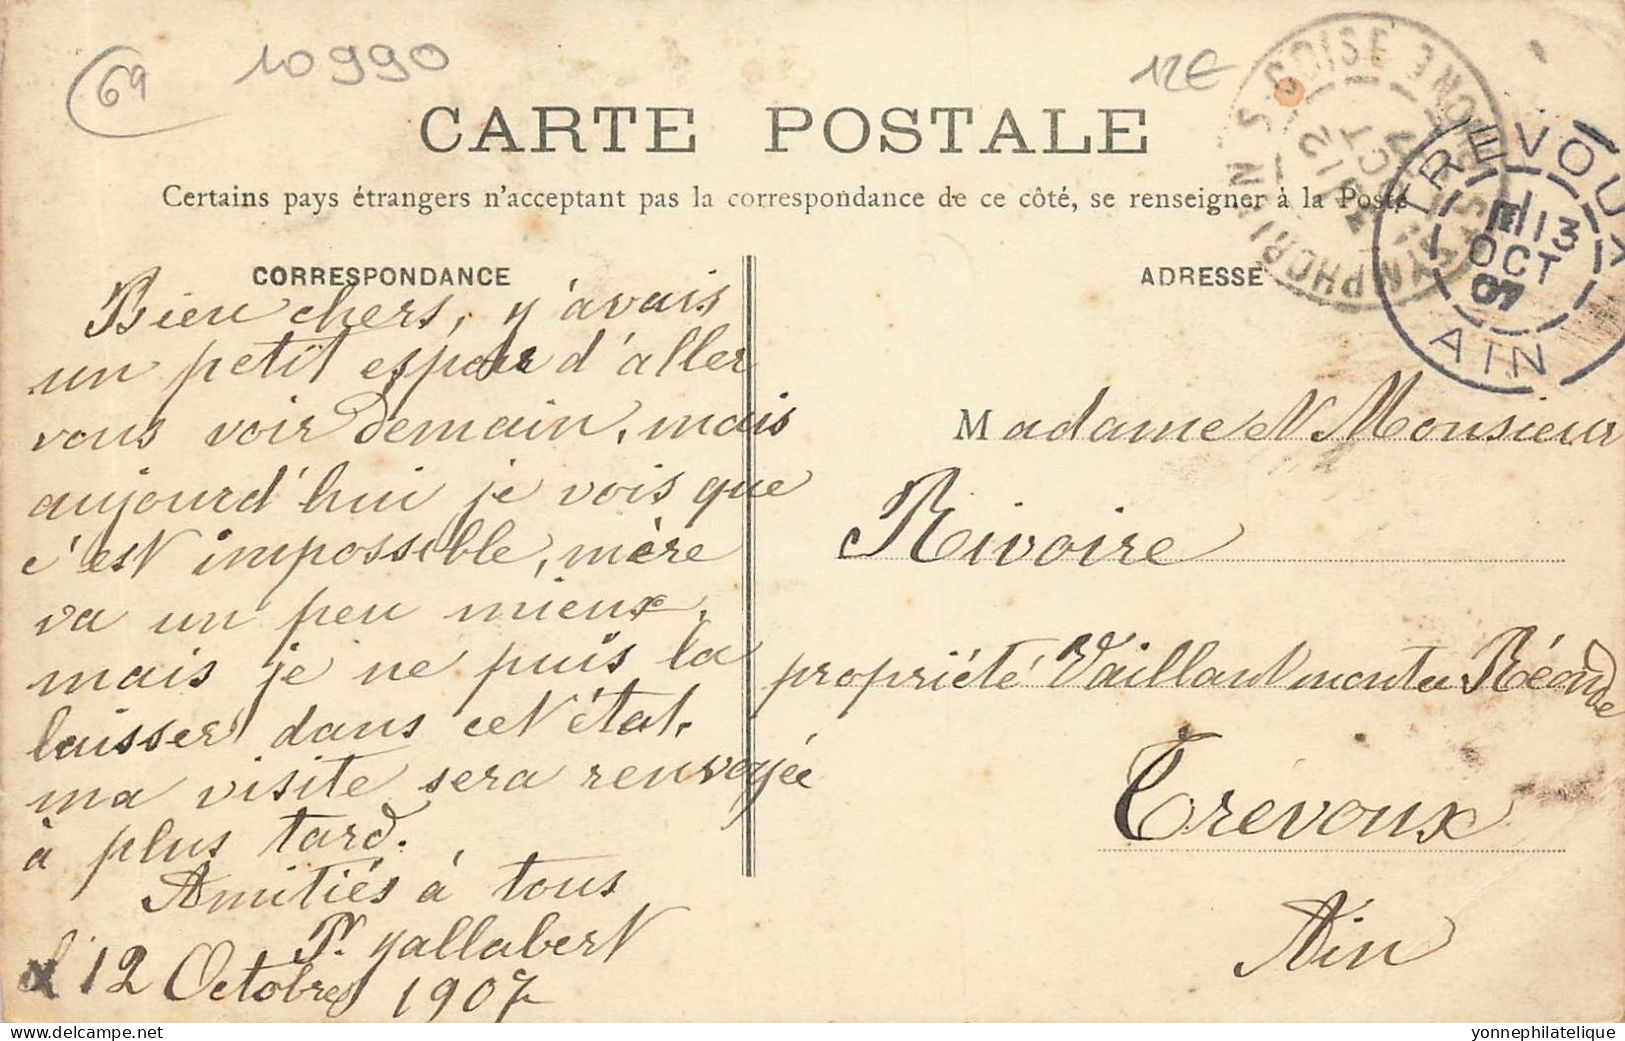 69
10990
12€
CARTE POSTALE
Certains pays étrangers n'acceptent pas la correspondance de ce côté, se renseigner à la Poste
S. SYMPHORIEN S. COISE RHONE
12
OCT
TREVOUX
13
OCT
07
AIN
CORRESPONDANCE
Bien chers, j'avais
un petit espoir d'aller
vous voir demain, mais
aujourd'hui je vois que
c'est impossible, mère
va un peu mieux,
mais je ne puis la
laisser dans cet état.
ma visite sera renvoyée
à plus tard.
Amitiés à tous
Jallabert
12 Octobre 1907
ADRESSE
Madame et Monsieur
Rivoire
propriété Vaillant montée
Trevoux
Ain
yonnephilatelique
delcampe.net